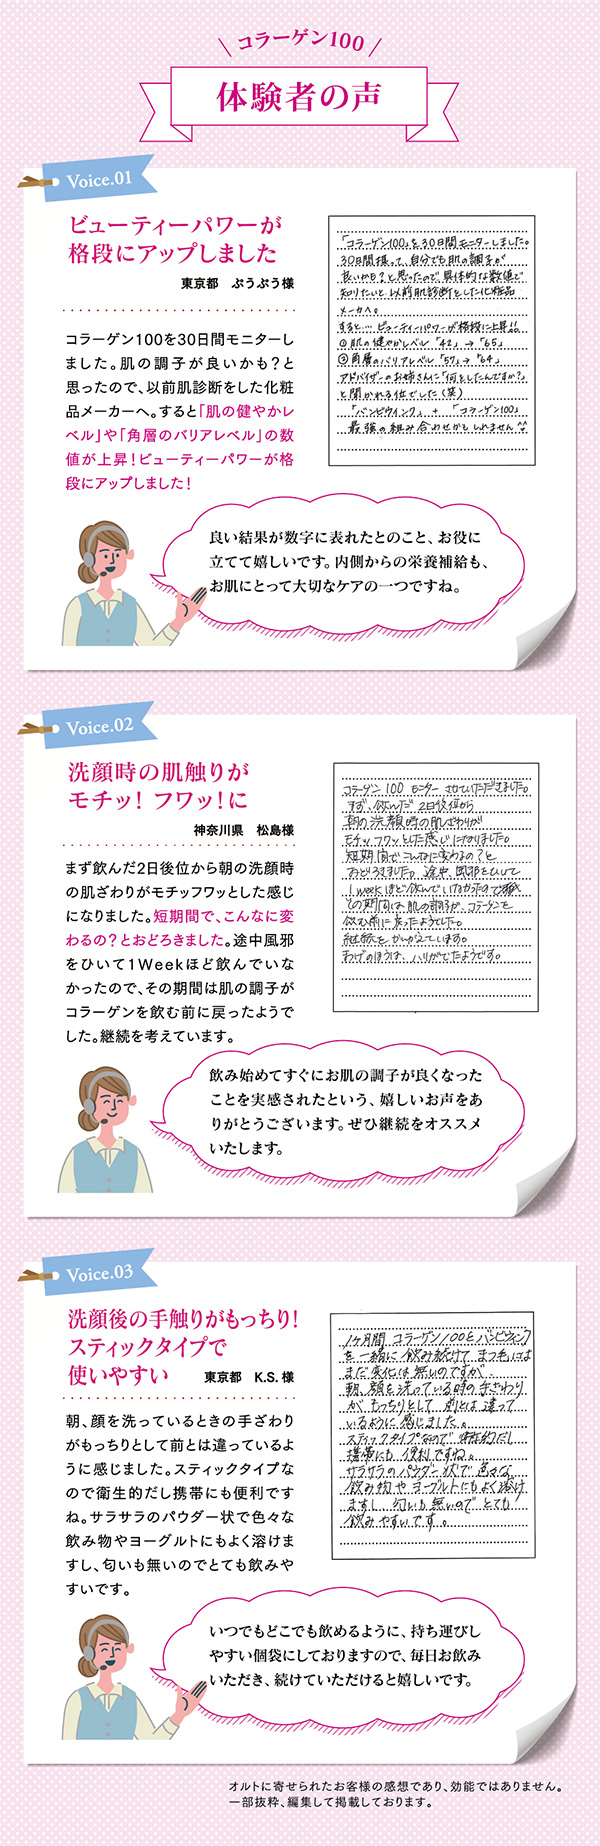 コラーゲン100
体験者の声
Voice.01
ビューティーパワーが
格段にアップしました
東京都 ぷうぷう様
コラーゲン100を30日間モニターし
ました。肌の調子が良いかも?と
思ったので、以前肌診断をした化粧
品メーカーへ。すると「肌の健やかレ
ベル」や「角層のバリアレベル」の数
値が上昇!ビューティーパワーが格
段にアップしました!
「コラーゲン100」を30日間モニターしました。
30日間摂って、自分でも肌の調子が
良いかも?と思ったので具体的な数値で
知りたいと以前肌診断をした化粧品
メーカーへ。
すると… ビューティーパワーが格段に上昇!!
①肌の健やかレベル 「42」→「65」
②角層のバリアレベル 「57」→「64」
アドバイザーのお姉さんに「何をしたんですか?」
と聞かれる位でした(笑)
「バンビウインク」+「コラーゲン100」
最強の組み合わせかもしれません
良い結果が数字に表れたとのこと、お役に
立てて嬉しいです。内側からの栄養補給も、
お肌にとって大切なケアの一つですね。
Voice.02
洗顔時の肌触りが
モチッ! フワッ!に
神奈川県 松島様
まず飲んだ2日後位から朝の洗顔時
の肌ざわりがモチッフワッとした感じ
になりました。短期間で、こんなに変
わるの?とおどろきました。途中風邪
をひいて1Weekほど飲んでいな
かったので、その期間は肌の調子が
コラーゲンを飲む前に戻ったようで
した。継続を考えています。
コラーゲン100 モニター させていただきました。
まず、飲んだ 2日後位から
朝の洗顔時の肌ざわりが
モチッフワッとした感じになりました。
短期間でこんなに変わるの?と
おどろきました。途中、風邪をひいて
1weekほど飲んでいなかったので
その期間は肌の調子が、コラーゲンを
飲む前に戻ったようでした。
継続をかんがえています。
まつげのほうは、ハリがでたようです。
飲み始めてすぐにお肌の調子が良くなった
ことを実感されたという、嬉しいお声をあ
りがとうございます。ぜひ継続をオススメ
いたします。
Voice.03
洗顔後の手触りがもっちり!
スティックタイプで
使いやすい 東京都 K.S.様
朝、顔を洗っているときの手ざわり
がもっちりとして前とは違っているよ
うに感じました。スティックタイプな
ので衛生的だし携帯にも便利です
ね。サラサラのパウダー状で色々な
飲み物やヨーグルトにもよく溶けま
すし、匂いも無いのでとても飲みや
すいです。
1ヶ月間 コラーゲン100とバンビウィンク
を一緒に飲み続けて まつ毛には
まだ変化は無いのですが、
朝、顔を洗っている時の手ざわり
が もっちりとして 前とは違って
いるように感じました。
スティックタイプなので 衛生的だし
携帯にも便利ですね。
サラサラのパウダー状で 色々な
飲み物やヨーグルトにもよく溶け
ますし 匂いも無いので とても
飲みやすいです。
いつでもどこでも飲めるように、持ち運びし
やすい個袋にしておりますので、毎日お飲み
いただき、続けていただけると嬉しいです。
オルトに寄せられたお客様の感想であり、効能ではありません。
一部抜粋、編集して掲載しております。